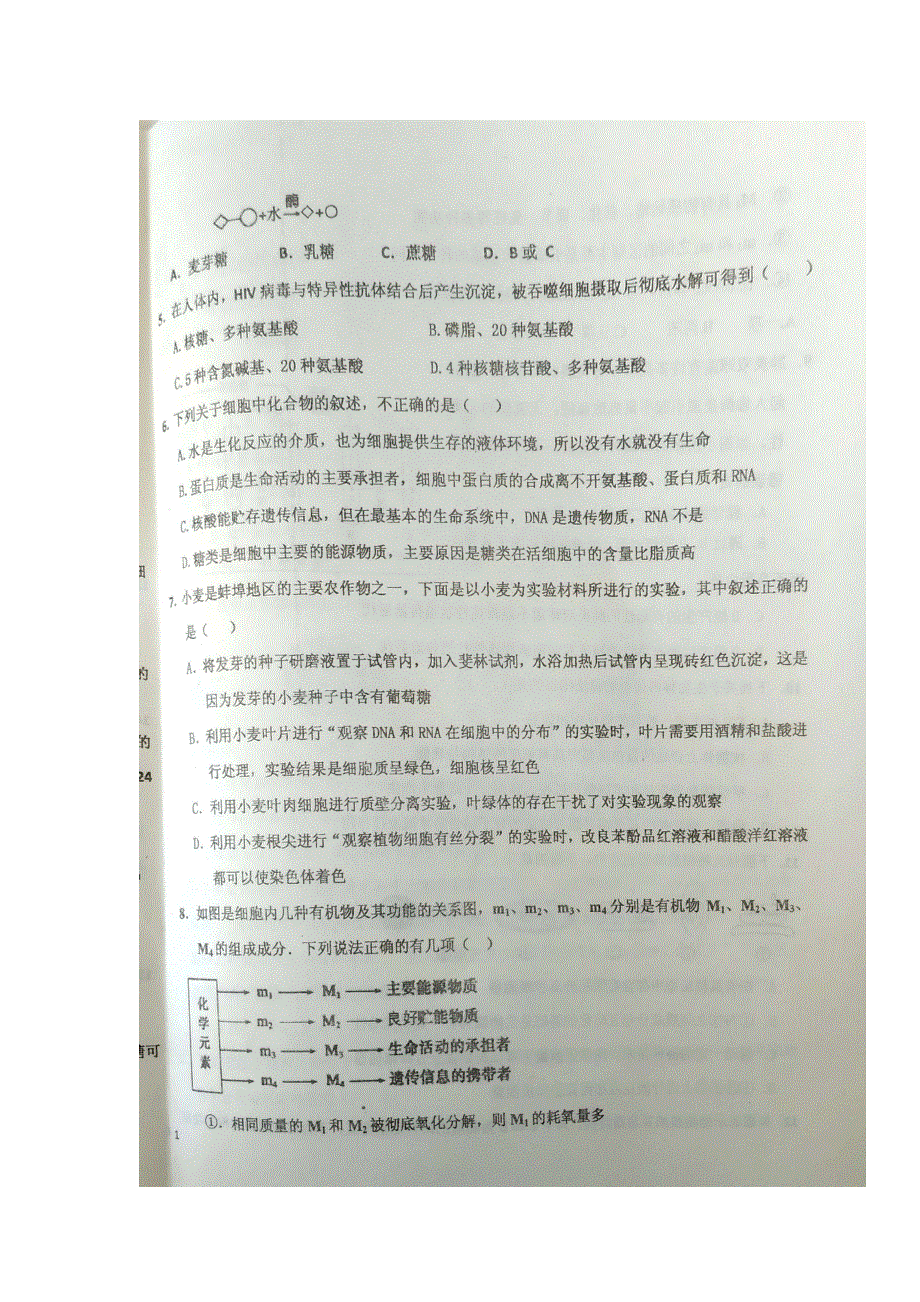 ◇—○+水 酶→ ◇+○
A．麦芽糖 B．乳糖 C．蔗糖 D．B或 C
5. 在人体内，HIV 病毒与特异性抗体结合后产生沉淀，被吞噬细胞摄取后彻底水解可得到（ ）
A.核糖、多种氨基酸 B.磷脂、20 种氨基酸
C.5 种含氮碱基、20 种氨基酸 D.4 种核糖核苷酸、多种氨基酸
6. 下列关于细胞中化合物的叙述，不正确的是（ ）
A.水是生化反应的介质，也为细胞提供生存的液体环境，所以没有水就没有生命
B.蛋白质是生命活动的主要承担者，细胞中蛋白质的合成离不开氨基酸、蛋白质和 RNA
C.核酸能贮存遗传信息，但在最基本的生命系统中，DNA 是遗传物质，RNA 不是
D.糖类是细胞中主要的能源物质，主要原因是糖类在活细胞中的含量比脂质高
7. 小麦是蚌埠地区的主要农作物之一，下面是以小麦为实验材料所进行的实验，其中叙述正确的
是（ ）
A．将发芽的种子研磨液置于试管内，加入斐林试剂，水浴加热后试管内呈现砖红色沉淀，这是
因为发芽的小麦种子中含有葡萄糖
B．利用小麦叶片进行“观察 DNA 和 RNA 在细胞中的分布”的实验时，叶片需要用酒精和盐酸进
行处理，实验结果是细胞质呈绿色，细胞核呈红色
C．利用小麦叶肉细胞进行质壁分离实验，叶绿体的存在干扰了对实验现象的观察
D．利用小麦根尖进行“观察植物细胞有丝分裂”的实验时，改良苯酚品红溶液和醋酸洋红溶液
都可以使染色体着色
8. 如图是细胞内几种有机物及其功能的关系图，m₁、m₂、m₃、m₄分别是有机物 M₁、M₂、M₃、
M₄的组成成分．下列说法正确的有几项（ ）
化学元素
m₁ → M₁ → 主要能源物质
m₂ → M₂ → 良好贮能物质
m₃ → M₃ → 生命活动的承担者
m₄ → M₄ → 遗传信息的携带者
①．相同质量的 M₁ 和 M₂ 被彻底氧化分解，则 M₁ 的耗氧量多
1
的
的
24
糖可